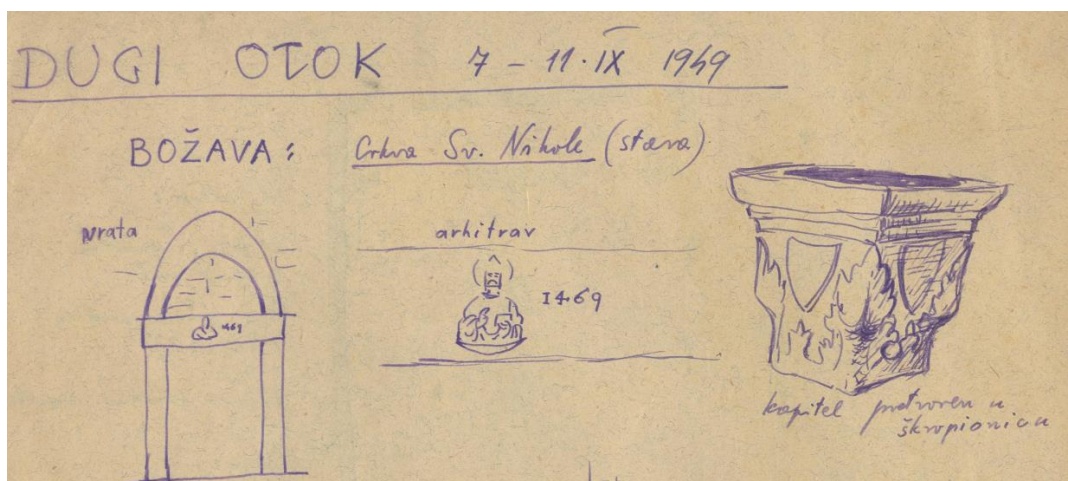 DUGI OTOK 7 - 11. IX 1949
BOŽAVA: Crkva Sv. Nikole (stara)
vrata
arhitrav
1469
1469
kapitel pretvoren u
škropionicu